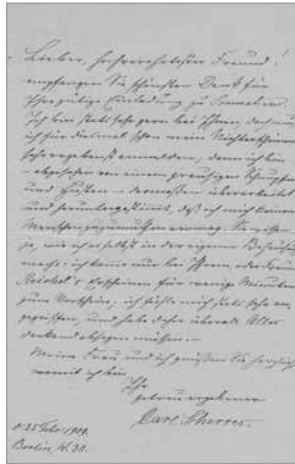 Lieber, hochverehrtester Freund!
empfangen Sie schönsten Dank für
Ihre gütige Einladung zu Sonnabend.
Ich bin stets sehr gern bei Ihnen,
ich für diesmal schon mein Nichterscheinen
anmelden, denn ich bin
abgesehen von einem Schnupfen
und Husten - dermaßen überarbeitet
und heruntergestimmt, daß ich mich keinem
Menschen zumuthen vermag. Sie wissen
ja, wie ich es selbst in der eigenen Behausung
mache: ich komme nur bei Ihrem, oder Freund
Erscheinen für wenige Minuten
zum Vorschein; ich fühle mich stets sehr an-
gegriffen, und habe daher überall Alles
dankend absagen müssen. -
Meine Frau und ich grüßen Sie herzlich
womit ich bin
Ihr
getreu ergebener
Carl Scherres.
d. 25 Febr. 1909.
Berlin, W. 30.